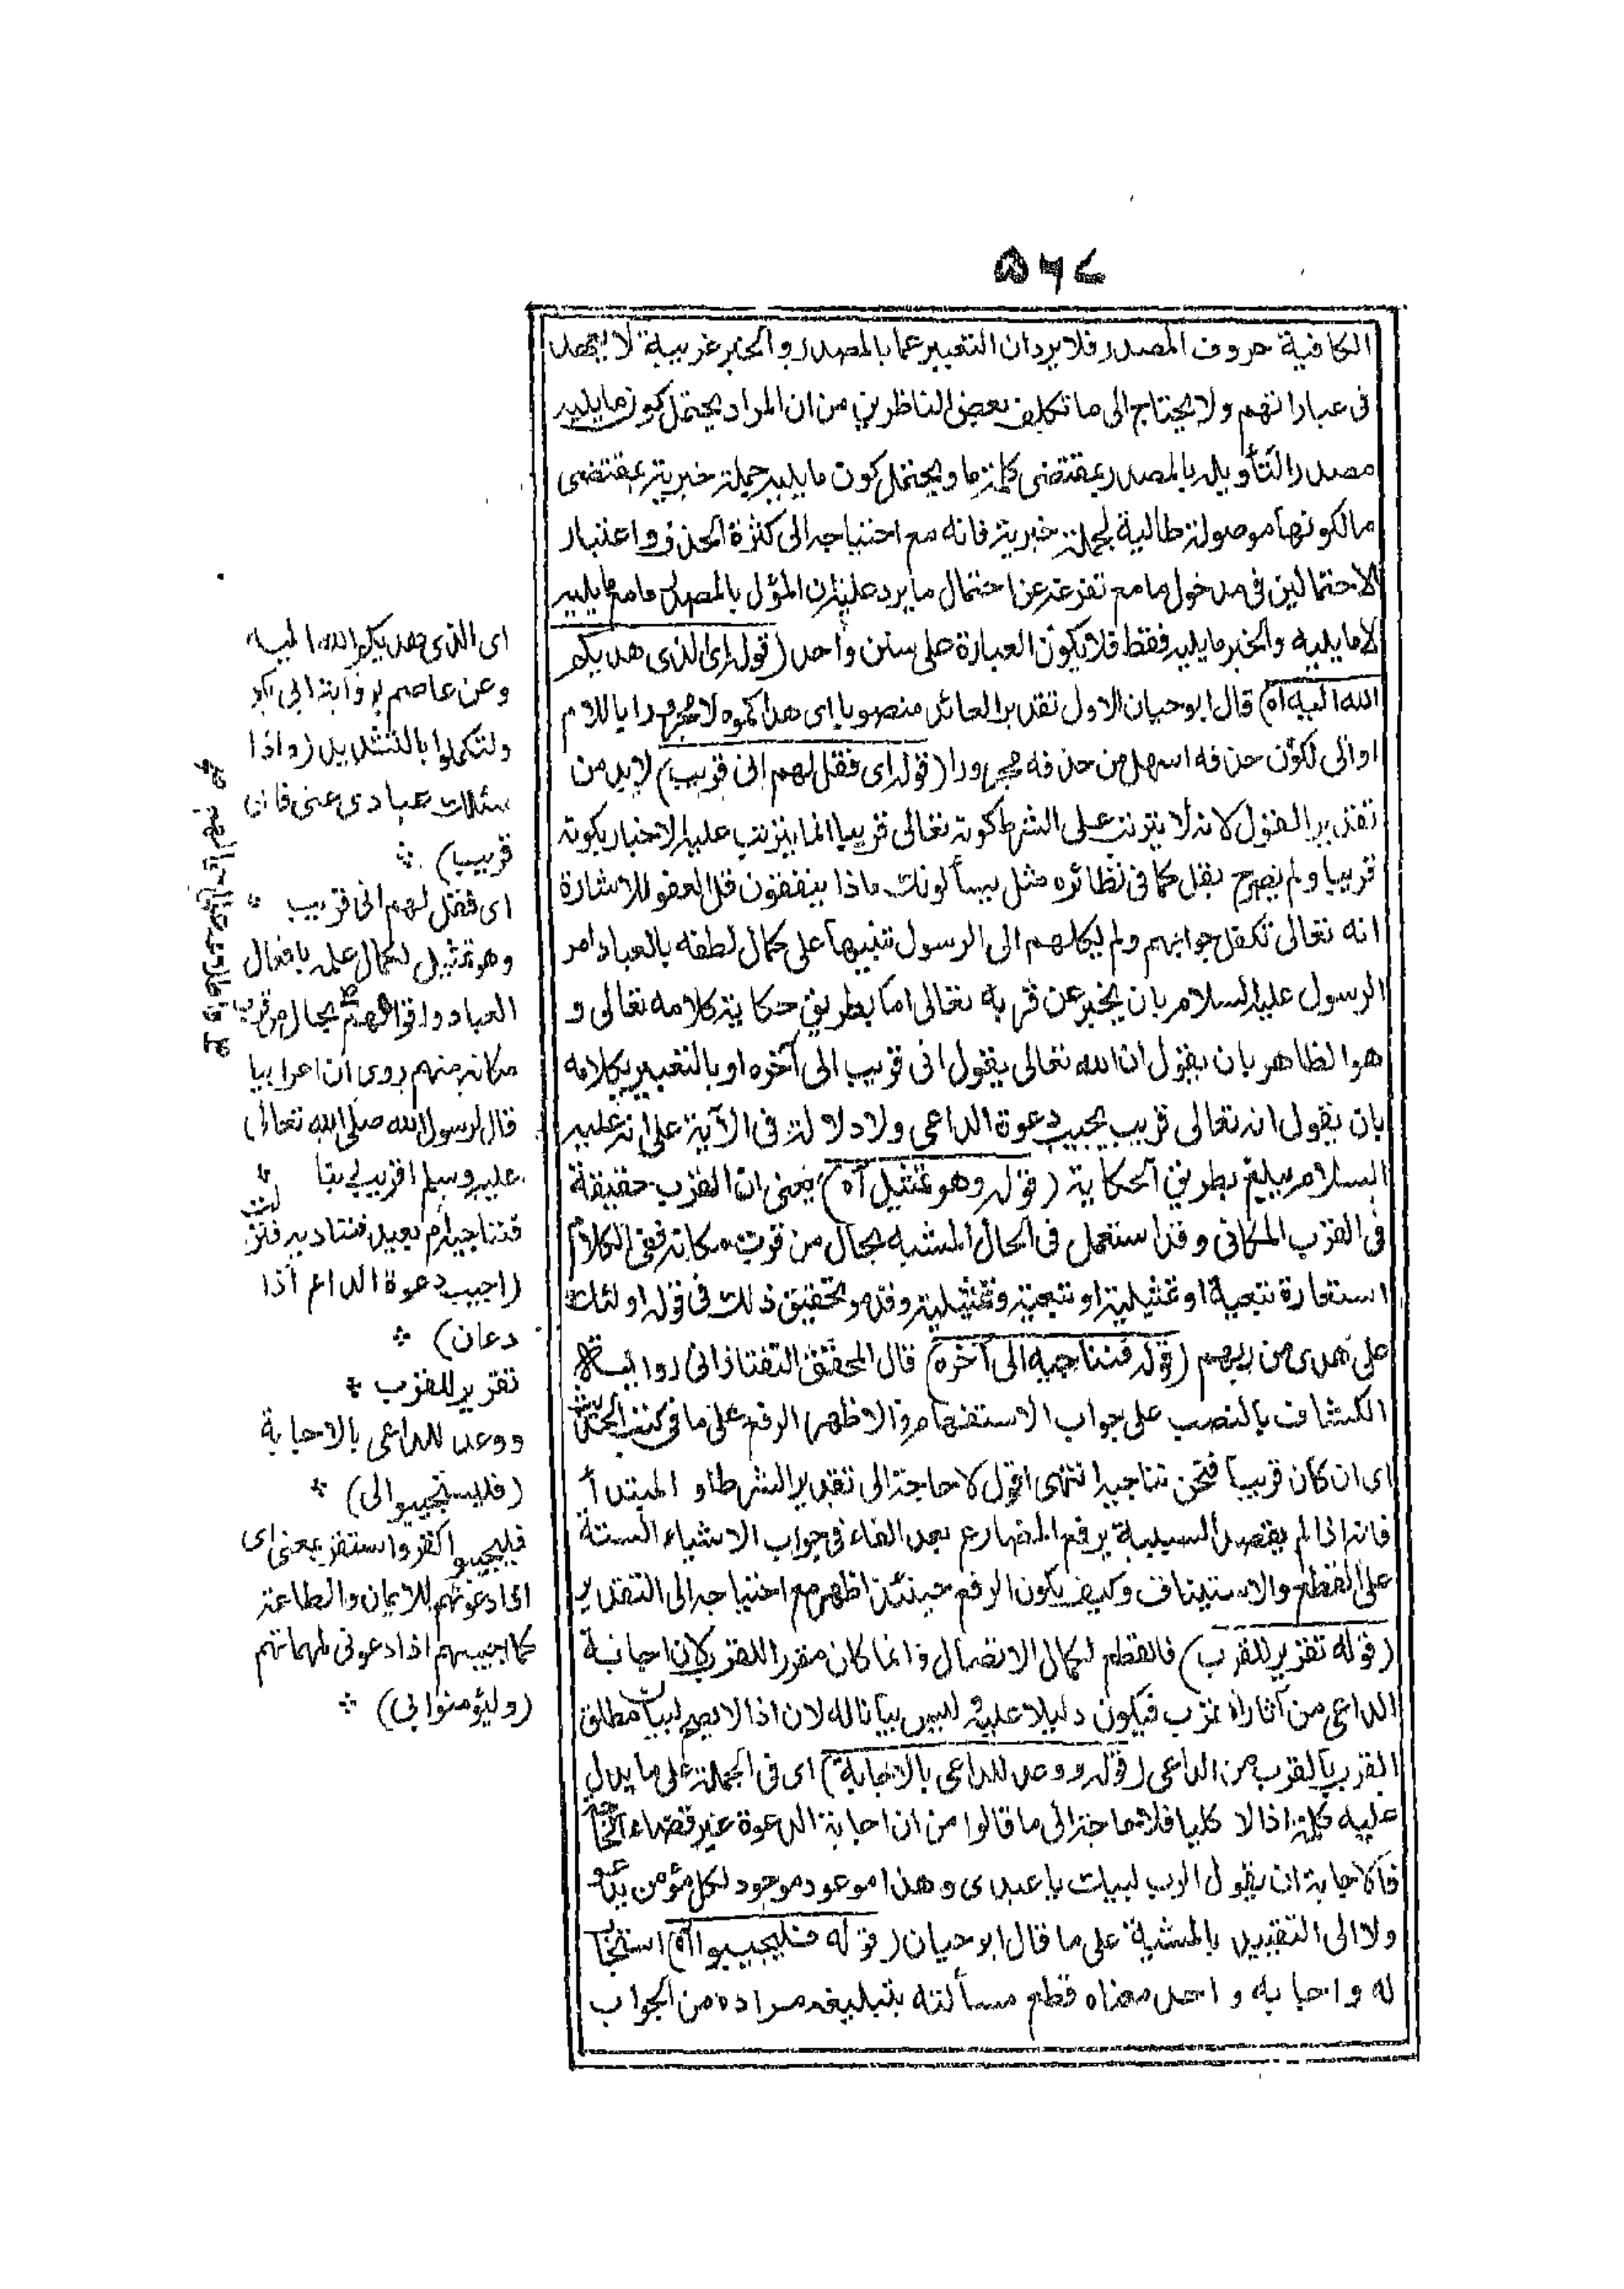 ٥٦٧
الكافية حروف المصدر فلا يرد ان التعبير عما بالمصدر والخبر غريبة لا يعهد
فى عباراتهم ولا يحتاج الى ما تكلف بعض الناظرين من ان المراد يحتمل كون ما يليه
مصدرا لتأويله بالمصدر بمقتضى كلمة ما ويحتمل كون ما يليه جملة خبرية بمقتضى
ما لكونها موصولة طالبة لجملة خبرية فانه مع احتياجه الى كثرة الحذف واعتبار
الاحتمالين فى مدخول ما مع تفرعه عن احتمال ما يرد عليه ان المؤل بالمصدر ما مع ما يليه
لا ما يليه والخبر ما يليه فقط فلا يكون العبارة على سنن واحد (قوله اى الذى هديكم
الله اليه آه) قال ابو حيان الاول تقدير العائد منصوبا اى هداكموه لا مجرورا باللام
او الى لكون حذفه اسهل من حذفه مجرورا (قوله اى فقل لهم انى قريب) لابد من
تقدير القول لانه لا يترتب على الشرط كونه تعالى قريبا انما يترتب عليه الاخبار بكونه
قريبا ولم يصرح بقل كما فى نظائره مثل يسألونك ماذا ينفقون قل العفو للاشارة
انه تعالى تكفل جوابهم ولم يكلهم الى الرسول تنبيها على كمال لطفه بالعباد امر
الرسول عليه السلام بان يخبر عن قربه تعالى اما بطريق حكاية كلامه تعالى و
هو الظاهر بان يقول ان الله تعالى يقول انى قريب الى آخره او بالتعبير بكلامه
بان يقول انه تعالى قريب يجيب دعوة الداعى ولا دلالة فى الآية على انه عليه
السلام يبلغ بطريق الحكاية (قوله وهو تمثيل آه) يعنى ان القرب حقيقة
فى القرب المكانى وقد استعمل فى الحال المشبه بحال من قرب مكانه ففى الكلام
استعارة تبعية او تمثيلية او تبعية وتمثيلية وقد مر تحقيق ذلك فى قوله اولئك
على هدى من ربهم (قوله فنناجيه الى آخره) قال المحقق التفتازانى رواية
الكشاف بالنصب على جواب الاستفهام والاظهر الرفع على ما فى كتب الحديث
اى ان كان قريبا فنحن نناجيه انتهى اقول لا حاجة الى تقدير الشرط او المبتدأ
فانه اذا لم يقصد السببية يرفع المضارع بعد الفاء فى جواب الاشياء الستة
على القطع والاستيناف وكيف يكون الرفع حينئذ اظهر مع احتياجه الى التقدير
(قوله تقرير للقرب) فالقطع لكمال الاتصال وانما كان مقررا للقرب لان اجابة
الداعى من آثار القرب فيكون دليلا عليه وليس بيانا له لان اذا لا يصح لبيان مطلق
القرب بالقرب من الداعى (قوله ووعد للداعى بالاجابة) اى فى الجملة على ما يدل
عليه كلمة اذا لا كليا فلا حاجة الى ما قالوا من ان اجابة الدعوة غير قضاء الحاجة
فالاجابة ان يقول الرب لبيك يا عبدى وهذا موعود موجود لكل مؤمن يدعو
ولا الى التقييد بالمشية على ما قال ابو حيان (قوله فليجيبوا آه) استجاب
له واجابه واحد معناه قطع مسألته بتبليغه مراده من الجواب
اى الذى هديكم الله اليه
وعن عاصم برواية ابى بكر
ولتكملوا بالتشديد (واذا
سئلك عبادى عنى فانى
قريب)
اى فقل لهم انى قريب
وهو تمثيل لكمال علمه بافعال
العباد واقوالهم بحال من قرب
مكانه منهم روى ان اعرابيا
قال لرسول الله صلى الله تعالى
عليه وسلم اقريب ربنا
فنناجيه ام بعيد فنناديه فنزلت
(اجيب دعوة الداع اذا
دعان)
تقرير للقرب
ووعد للداعى بالاجابة
(فليستجيبوا لى)
اذا دعوتهم للايمان والطاعة
كما اجيبهم اذا دعونى لمهماتهم
(وليؤمنوا بى)